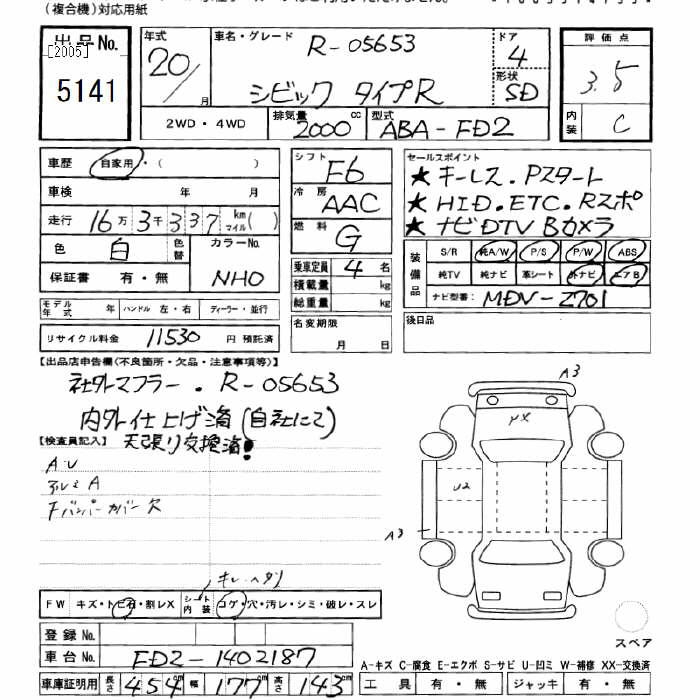 (複合機)対応用紙
出品No. [2005] 5141
年式 20/月
車名・グレード R-05653 シビック タイプR
ドア 4
形状 SD
評価点 3.5
内装 C
2WD・4WD
排気量 2000 cc
型式 ABA-FD2
車歴 自家用・( )
車検 年 月
走行 16万3千337 km マイル( )
色 白 色替 カラーNo. NHO
保証書 有・無
シフト F6
冷房 AAC
燃料 G
乗車定員 4 名
積載量 kg
総重量 kg
セールスポイント
★キーレス.Pスタート
★HID.ETC.Rスポ
★ナビDTV Bカメラ
装備品 S/R 純A/W P/S P/W ABS
純TV 純ナビ 革シート 外ナビ エアB
ナビ型番: MDV-Z701
モデル年式 年 ハンドル 左・右 ディーラー・並行
名変期限 月 日
後日品
リサイクル料金 11530 円 預託済
【出品店申告欄(不良箇所・欠品・注意事項等)】
社外マフラー.R-05653
内外仕上げ済(自社にて)
【検査員記入】 天張り交換済!
A.U
アルミA
Fバンパーカバー欠
A3
U2
A3
キレ.ヘタリ
FW キズ・トビ石・割レX シート内装 コゲ・穴・汚レ・シミ・破レ・スレ
スペア
登録No.
車台No. FD2-1402187
A-キズ C-腐食 E-エクボ S-サビ U-凹ミ W-補修 XX-交換済
車庫証明用 長さ 454cm 幅 177cm 高さ 143cm
工具 有・無 ジャッキ 有・無